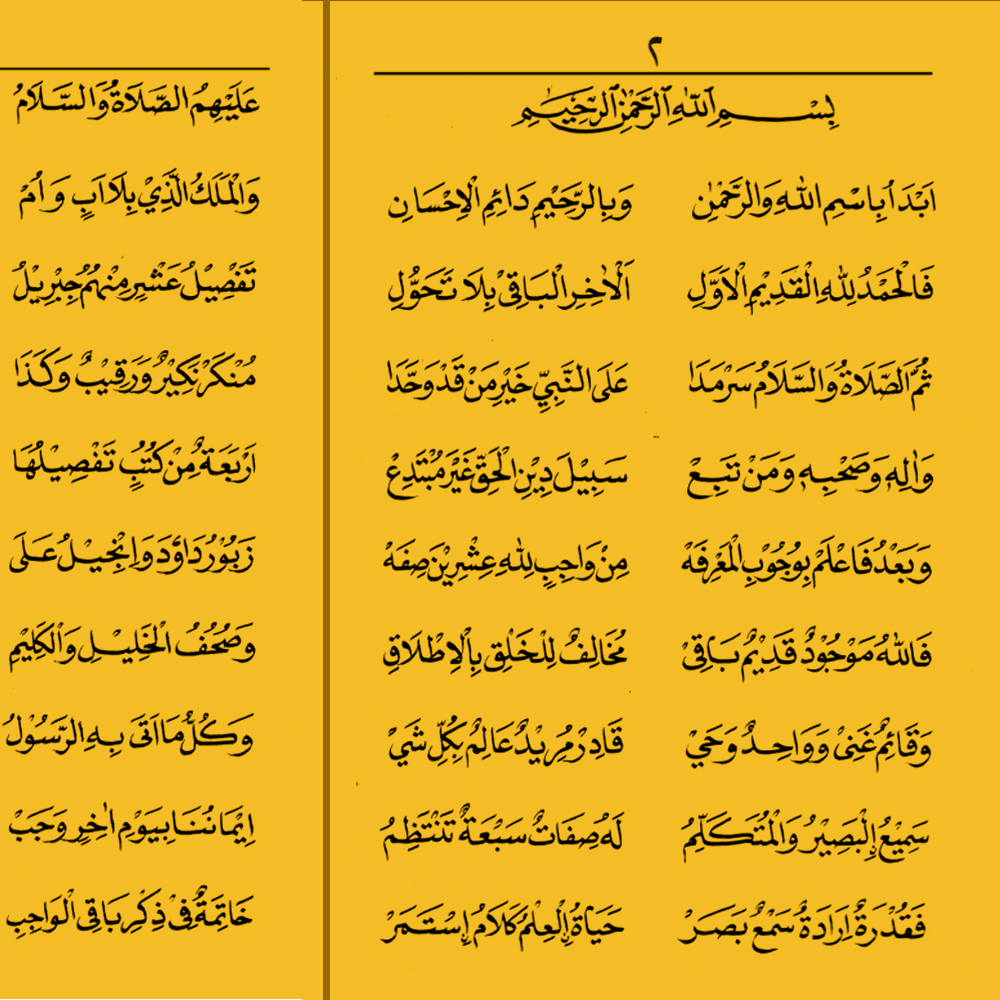 ٢
بِسْــــمِ ٱللّٰهِ ٱلرَّحْمٰنِ ٱلرَّحِيْمِ
اَبْدَأُ بِاسْمِ اللهِ وَالرَّحْمٰنِ وَبِالرَّحِيْمِ دَائِمِ الْاِحْسَانِ
فَالْحَمْدُ لِلّٰهِ الْقَدِيْمِ الْاَوَّلِ اَلْاٰخِرِ الْبَاقِىْ بِلَا تَحَوُّلِ
ثُمَّ الصَّلَاةُ وَالسَّلَامُ سَرْمَدَا عَلَى النَّبِيِّ خَيْرِ مَنْ قَدْ وَحَّدَا
وَاٰلِهٖ وَصَحْبِهٖ وَمَنْ تَبِعْ سَبِيْلَ دِيْنِ الْحَقِّ غَيْرَ مُبْتَدِعْ
وَبَعْدُ فَاعْلَمْ بِوُجُوْبِ الْمَعْرِفَهْ مِنْ وَاجِبٍ لِلّٰهِ عِشْرِيْنَ صِفَهْ
فَاللهُ مَوْجُوْدٌ قَدِيْمٌ بَاقِىْ مُخَالِفٌ لِلْخَلْقِ بِالْاِطْلَاقِ
وَقَائِمٌ غَنِىْ وَوَاحِدٌ وَحَيْ قَادِرْ مُرِيْدٌ عَالِمٌ بِكُلِّ شَيْ
سَمِيْعٌ اِلْبَصِيْرُ وَالْمُتَكَلِّمُ لَهُ صِفَاتٌ سَبْعَةٌ تَنْتَظِمُ
فَقُدْرَةٌ اِرَادَةٌ سَمْعٌ بَصَرْ حَيَاةٌ اِلْعِلْمُ كَلَامٌ اِسْتَمَرْ
عَلَيْهِمُ الصَّلَاةُ وَالسَّلَامُ
وَالْمَلَكُ الَّذِيْ بِلَا اَبٍ وَاُمْ
تَفْصِيْلُ عَشْرٍ مِنْهُمُ جِبْرِيْلُ
مُنْكَرْ نَكِيْرٌ وَرَقِيْبٌ وَكَذَا
اَرْبَعَةٌ مِنْ كُتُبٍ تَفْصِيْلُهَا
زَبُوْرُ دَاوُدَ وَاِنْجِيْلُ عَلَى
وَصُحُفُ الْخَلِيْلِ وَالْكَلِيْمِ
وَكُلُّ مَا اَتَى بِهِ الرَّسُوْلُ
اِيْمَانُنَا بِيَوْمِ اٰخِرٍ وَجَبْ
خَاتِمَةٌ فِىْ ذِكْرِ بَاقِى الْوَاجِبِ